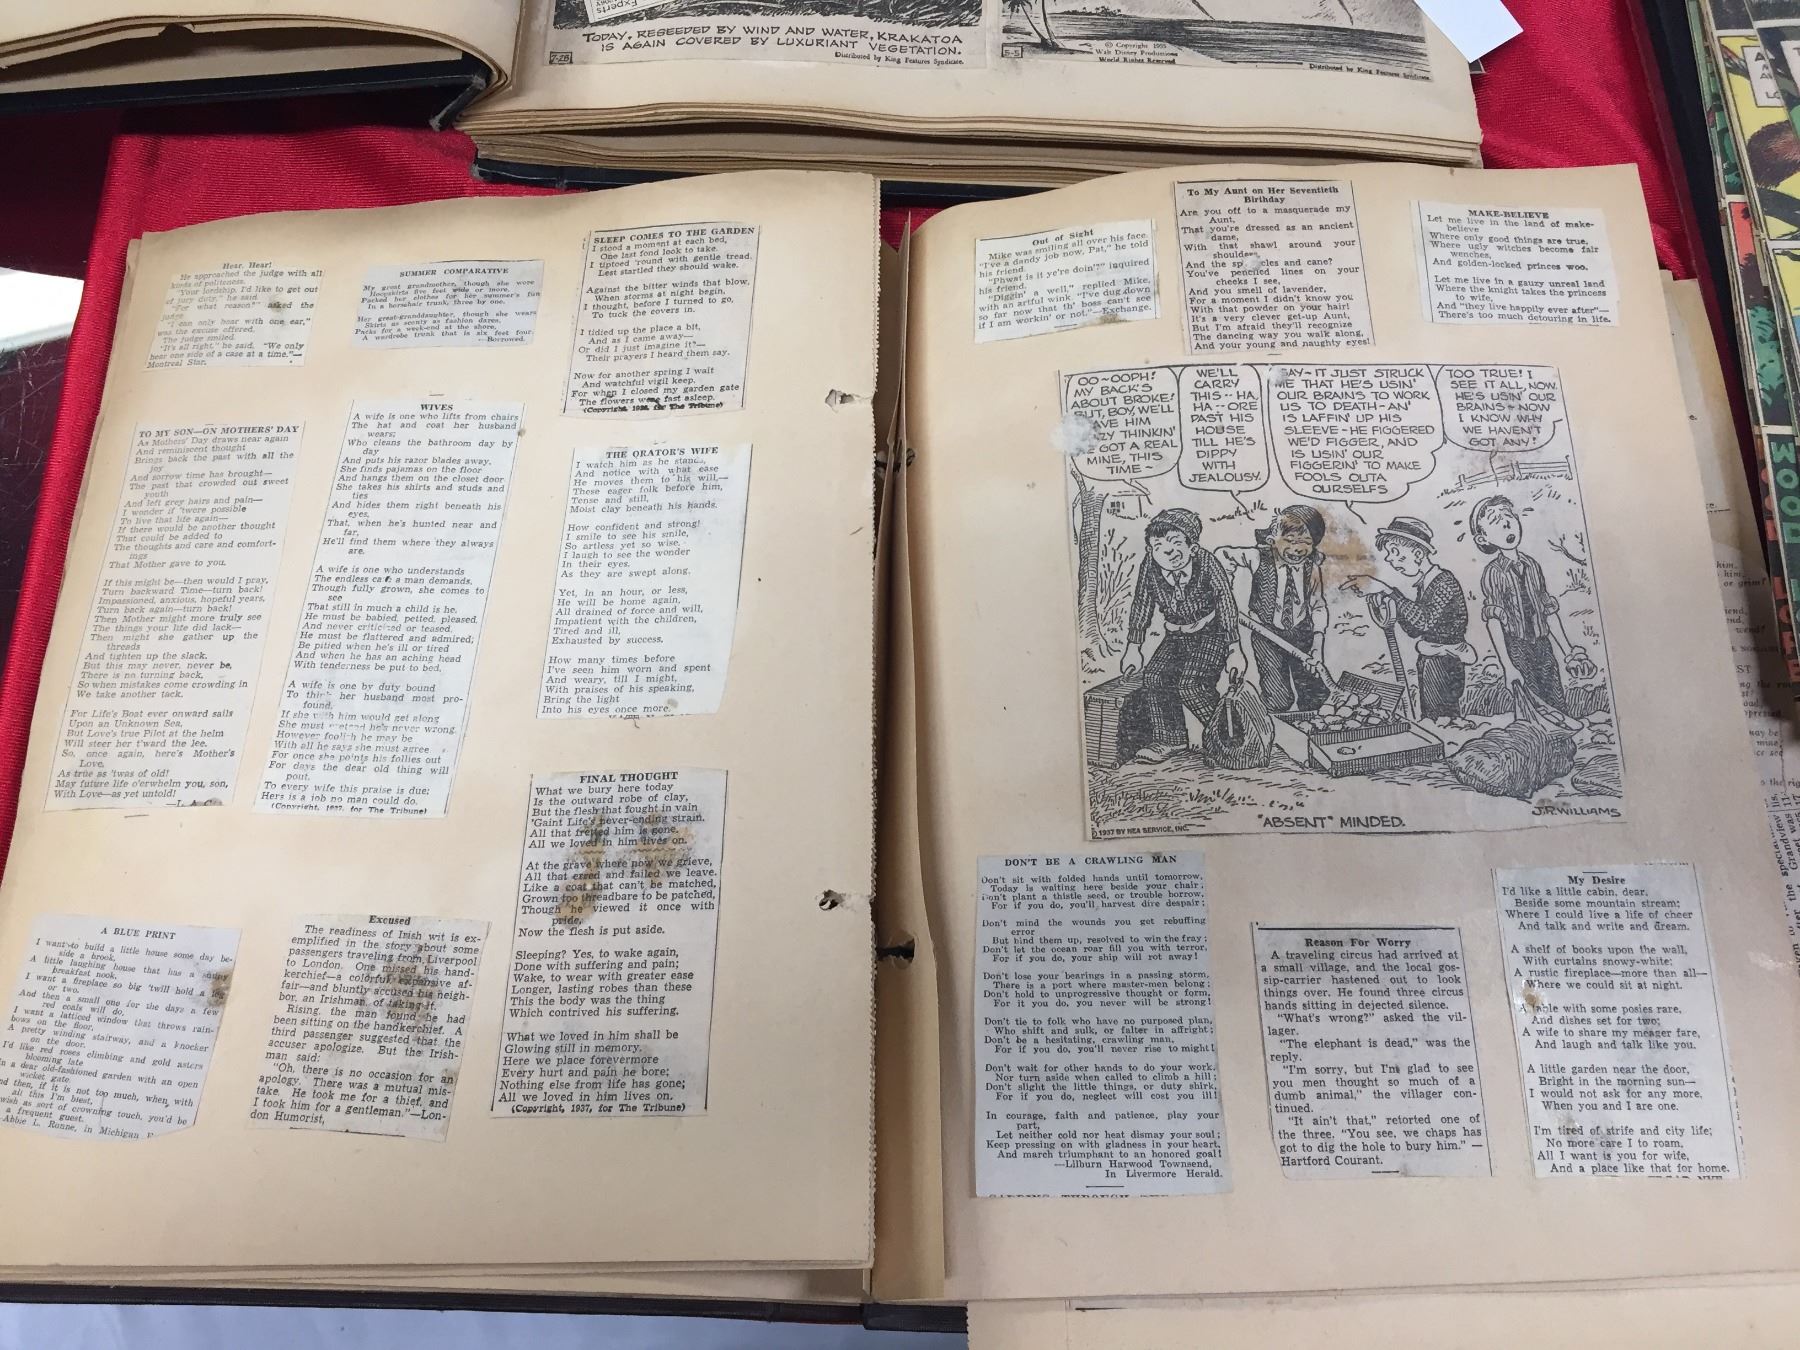 TODAY, RESEEDED BY WIND AND WATER, KRAKATOA
IS AGAIN COVERED BY LUXURIANT VEGETATION.
7-28
Distributed by King Features Syndicate.
5-5
© Copyright 1955
Walt Disney Productions
World Rights Reserved
Distributed by King Features Syndicate.
Hear, Hear!
He approached the judge with all
kinds of politeness.
"Your lordship, I'd like to get out
of jury duty," he said.
"For what reason?" asked the
judge
"I can only hear with one ear,"
was the excuse offered.
The judge smiled.
"It's all right," he said. "We only
hear one side of a case at a time."—
Montreal Star.
SUMMER COMPARATIVE
My great grandmother, though she wore
Hoopskirts five feet wide or more,
Packed her clothes for her summer's fun
In a horsehair trunk, three by one.
Her great-granddaughter, though she wears
Skirts as scanty as fashion dares,
Packs for a week-end at the shore,
A wardrobe trunk that is six feet four.
—Borrowed.
SLEEP COMES TO THE GARDEN
I stood a moment at each bed,
One last fond look to take.
I tiptoed 'round with gentle tread.
Lest startled they should wake.
Against the bitter winds that blow,
When storms at night begin,
I thought, before I turned to go,
To tuck the covers in.
I tidied up the place a bit,
And as I came away—
Or did I just imagine it?—
Their prayers I heard them say.
Now for another spring I wait
And watchful vigil keep.
For when I closed my garden gate
The flowers were fast asleep.
(Copyright, 1936, for The Tribune)
TO MY SON—ON MOTHERS' DAY
As Mothers' Day draws near again
And reminiscent thought
Brings back the past with all the
joy
And sorrow time has brought—
The past that crowded out sweet
youth
And left grey hairs and pain—
I wonder if 'twere possible
To live that life again—
If there would be another thought
That could be added to
The thoughts and care and comfort-
ings
That Mother gave to you.
If this might be—then would I pray,
Turn backward Time—turn back!
Impassioned, anxious, hopeful years,
Turn back again—turn back!
Then Mother might more truly see
The things your life did lack—
Then might she gather up the
threads
And tighten up the slack.
But this may never, never be,
There is no turning back,
So when mistakes come crowding in
We take another tack.
For Life's Boat ever onward sails
Upon an Unknown Sea,
But Love's true Pilot at the helm
Will steer her t'ward the lee.
So, once again, here's Mother's
Love,
As true as 'twas of old!
May future life o'erwhelm you, son,
With Love—as yet untold!
WIVES
A wife is one who lifts from chairs
The hat and coat her husband
wears;
Who cleans the bathroom day by
day
And puts his razor blades away.
She finds pajamas on the floor
And hangs them on the closet door
She takes his shirts and studs and
ties
And hides them right beneath his
eyes,
That, when he's hunted near and
far,
He'll find them where they always
are.
A wife is one who understands
The endless care a man demands.
Though fully grown, she comes to
see
That still in much a child is he.
He must be babied, petted, pleased,
And never criticised or teased.
He must be flattered and admired;
Be pitied when he's ill or tired
And when he has an aching head
With tenderness be put to bed.
A wife is one by duty bound
To think her husband most pro-
found.
If she with him would get along
She must pretend he's never wrong.
However foolish he may be
With all he says she must agree
For once she points his follies out
For days the dear old thing will
pout.
To every wife this praise is due:
Hers is a job no man could do.
(Copyright, 1937, for The Tribune)
THE ORATOR'S WIFE
I watch him as he stands,
And notice with what ease
He moves them to his will,—
These eager folk before him,
Tense and still,
Moist clay beneath his hands.
How confident and strong!
I smile to see his smile,
So artless yet so wise.
I laugh to see the wonder
In their eyes,
As they are swept along.
Yet, in an hour, or less,
He will be home again,
All drained of force and will,
Impatient with the children,
Tired and ill,
Exhausted by success.
How many times before
I've seen him worn and spent
And weary, till I might,
With praises of his speaking,
Bring the light
Into his eyes once more.
FINAL THOUGHT
What we bury here today
Is the outward robe of clay,
But the flesh that fought in vain
'Gaint Life's never-ending strain.
All that fretted him is gone.
All we loved in him lives on.
At the grave where now we grieve,
All that erred and failed we leave.
Like a coat that can't be matched,
Grown too threadbare to be patched,
Though he viewed it once with
pride,
Now the flesh is put aside.
Sleeping? Yes, to wake again,
Done with suffering and pain;
Wake, to wear with greater ease
Longer, lasting robes than these
This the body was the thing
Which contrived his suffering.
What we loved in him shall be
Glowing still in memory.
Here we place forevermore
Every hurt and pain he bore;
Nothing else from life has gone;
All we loved in him lives on.
(Copyright, 1937, for The Tribune)
A BLUE PRINT
I want to build a little house some day be-
side a brook,
A little laughing house that has a sunny
breakfast nook,
I want a fireplace so big 'twill hold a log
or two.
And then a small one for the days a few
red coals will do.
I want a latticed window that throws rain-
bows on the floor,
A pretty winding stairway, and a knocker
on the door.
I'd like red roses climbing and gold asters
blooming late
In a dear old-fashioned garden with an open
wicket gate
And then, if it is not too much, when with
all this I'm blest,
I wish as sort of crowning touch, you'd be
a frequent guest.
Abbie L. Runne, in Michigan
Excused
The readiness of Irish wit is ex-
emplified in the story about some
passengers traveling from Liverpool
to London. One missed his hand-
kerchief—a colorful, expansive af-
fair—and bluntly accused his neigh-
bor, an Irishman, of taking it.
Rising, the man found he had
been sitting on the handkerchief. A
third passenger suggested that the
accuser apologize. But the Irish-
man said:
"Oh, there is no occasion for an
apology. There was a mutual mis-
take. He took me for a thief, and
I took him for a gentleman."—Lon-
don Humorist,
Out of Sight
Mike was smiling all over his face.
"I've a dandy job now, Pat," he told
his friend.
"Phwat is it ye're doin'?" inquired
his friend.
"Diggin' a well," replied Mike,
with an artful wink. "I've dug down
so far now that th' boss can't see
if I am workin' or not."—Exchange.
To My Aunt on Her Seventieth
Birthday
Are you off to a masquerade my
Aunt,
That you're dressed as an ancient
dame,
With that shawl around your
shoulders
And the spectacles and cane?
You've penciled lines on your
cheeks I see,
And you smell of lavender,
For a moment I didn't know you
With that powder on your hair!
It's a very clever get-up Aunt,
But I'm afraid they'll recognize
The dancing way you walk along,
And your young and naughty eyes!
MAKE-BELIEVE
Let me live in the land of make-
believe
Where only good things are true,
Where ugly witches become fair
wenches,
And golden-locked princes woo.
Let me live in a gauzy unreal land
Where the knight takes the princess
to wife,
And "they live happily ever after"—
There's too much detouring in life.
OO~OOPH!
MY BACK'S
ABOUT BROKE!
BUT, BOY, WE'LL
HAVE HIM
CRAZY THINKIN'
WE GOT A REAL
MINE, THIS
TIME~
WE'LL
CARRY
THIS--HA,
HA--ORE
PAST HIS
HOUSE
TILL HE'S
DIPPY
WITH
JEALOUSY.
SAY~IT JUST STRUCK
ME THAT HE'S USIN'
OUR BRAINS TO WORK
US TO DEATH-AN'
IS LAFFIN' UP HIS
SLEEVE-HE FIGGERED
WE'D FIGGER, AND
IS USIN' OUR
FIGGERIN' TO MAKE
FOOLS OUTA
OURSELFS
TOO TRUE! I
SEE IT ALL, NOW.
HE'S USIN' OUR
BRAINS~NOW
I KNOW WHY
WE HAVEN'T
GOT ANY!
© 1937 BY NEA SERVICE, INC.
"ABSENT" MINDED.
J.R. WILLIAMS
DON'T BE A CRAWLING MAN
Don't sit with folded hands until tomorrow,
Today is waiting here beside your chair;
Don't plant a thistle seed, or trouble borrow,
For if you do, you'll harvest dire despair;
Don't mind the wounds you get rebuffing
error
But bind them up, resolved to win the fray;
Don't let the ocean roar fill you with terror,
For if you do, your ship will rot away!
Don't lose your bearings in a passing storm,
There is a port where master-men belong;
Don't hold to unprogressive thought or form,
For if you do, you never will be strong!
Don't tie to folk who have no purposed plan,
Who shift and sulk, or falter in affright;
Don't be a hesitating, crawling man,
For if you do, you'll never rise to might!
Don't wait for other hands to do your work,
Nor turn aside when called to climb a hill;
Don't slight the little things, or duty shirk,
For if you do, neglect will cost you ill!
In courage, faith and patience, play your
part,
Let neither cold nor heat dismay your soul;
Keep pressing on with gladness in your heart,
And march triumphant to an honored goal!
—Lilburn Harwood Townsend,
In Livermore Herald.
Reason For Worry
A traveling circus had arrived at
a small village, and the local gos-
sip-carrier hastened out to look
things over. He found three circus
hands sitting in dejected silence.
"What's wrong?" asked the vil-
lager.
"The elephant is dead," was the
reply.
"I'm sorry, but I'm glad to see
you men thought so much of a
dumb animal," the villager con-
tinued.
"It ain't that," retorted one of
the three. "You see, we chaps has
got to dig the hole to bury him."—
Hartford Courant.
My Desire
I'd like a little cabin, dear,
Beside some mountain stream;
Where I could live a life of cheer
And talk and write and dream.
A shelf of books upon the wall,
With curtains snowy-white;
A rustic fireplace—more than all—
Where we could sit at night.
A table with some posies rare,
And dishes set for two;
A wife to share my meager fare,
And laugh and talk like you.
A little garden near the door,
Bright in the morning sun—
I would not ask for any more,
When you and I are one.
I'm tired of strife and city life;
No more care I to roam,
All I want is you for wife,
And a place like that for home.